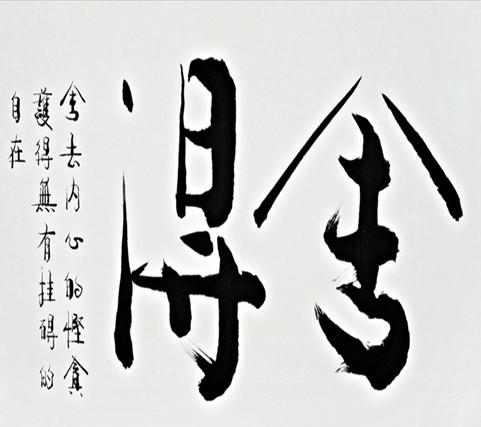 舍得
舍去内心的慳貪
護得無有挂碍的
自在